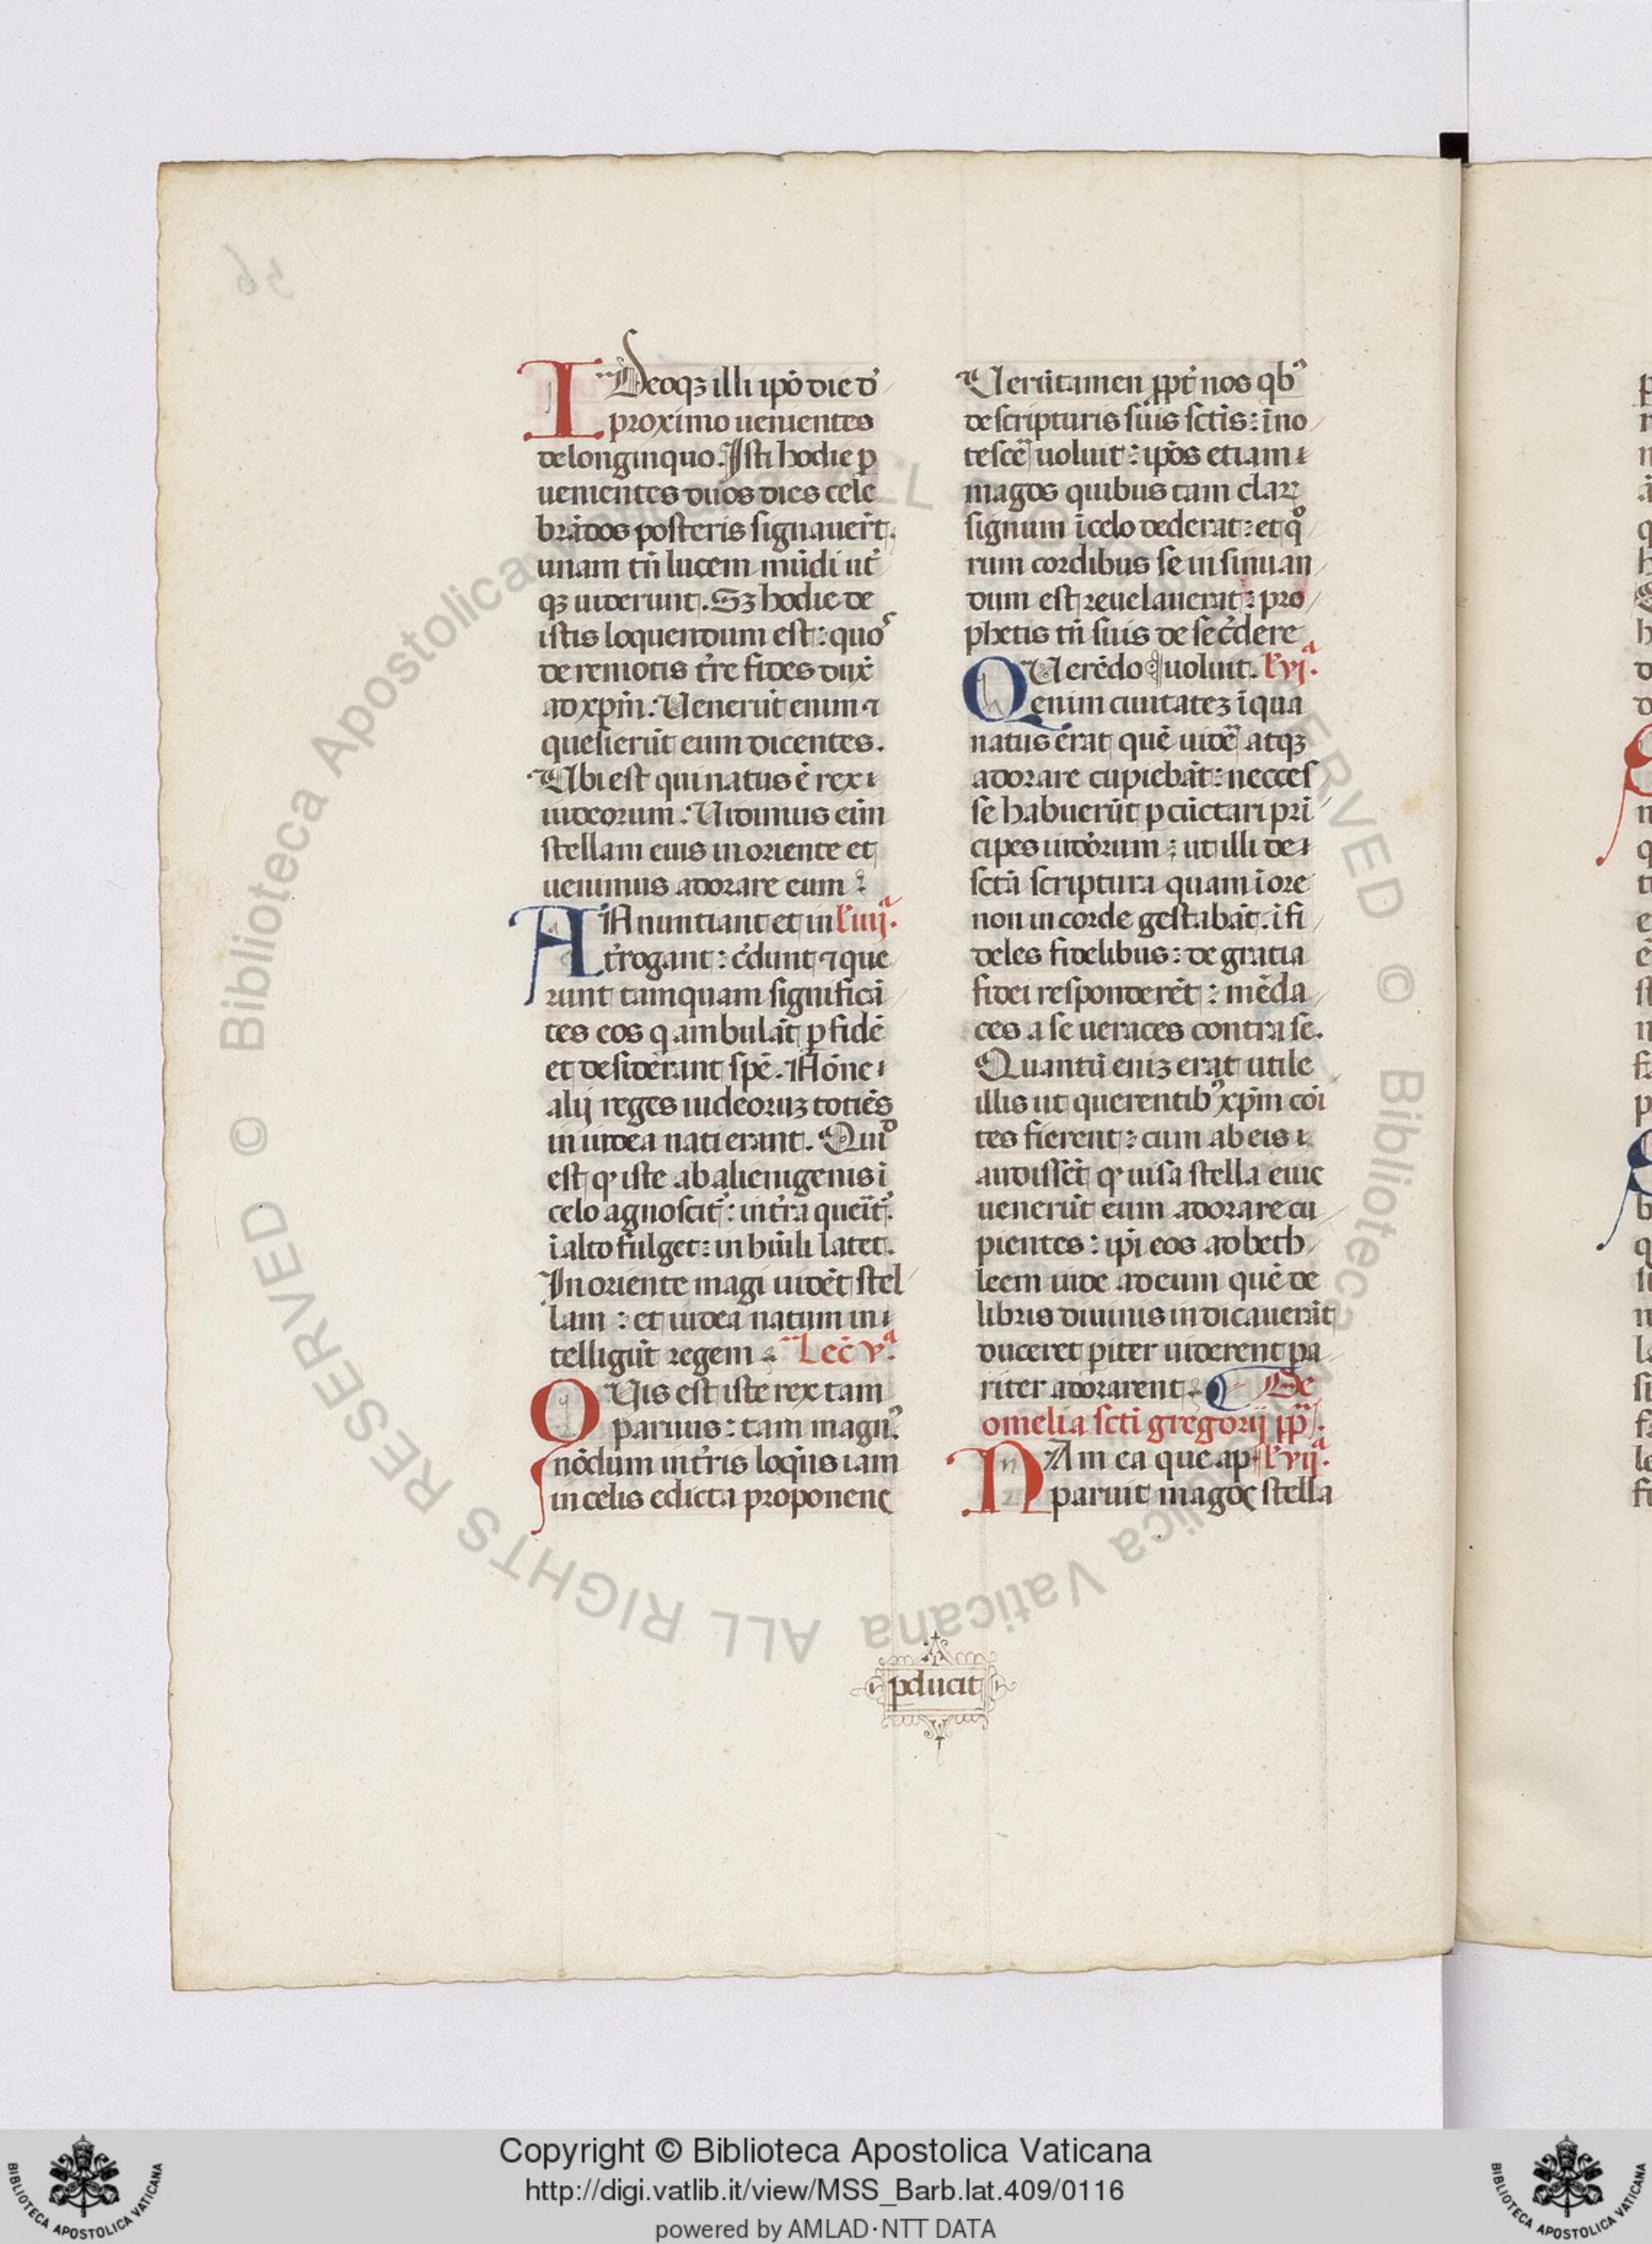 IDeoqꝫ illi ipō die d̄
proximo uenientes
de longinquo. Isti hodie ꝑ
uenientes duos dies cele
brādos posteris signauer̄t.
unam tn̄ lucem mūdi ut̄
qꝫ uiderunt. Sꝫ hodie de
istis loquendum est: quoˢ
de remotis t̄re fides dux̄
ad xp̄m. Uenerūt enim ⁊
quesierūt eum dicentes.
Ubi est qui natus ē rex
iudeorum. Uidimus eīm
stellam eius in oriente et
uenimus adorare eum:
ANnuntiant et in l̄.iiijᵃ.
t̄rogant: c̄dunt ⁊ que
runt tamquam significā
tes eos q ambulāt ꝑ fidē
et desiderant spē. Nōne
alij reges iudeoruꝫ totiēs
in iudea nati erant. Quiᵈ
est ꝙ iste ab alienigenis ī
celo agnoscit̄: in t̄ra querit̄.
ī alto fulget: in hūili latet.
In oriente magi uidēt stel
lam: et iudea natum in
telligūt regem. Lec̄ vᵃ.
QUis est iste rex tam
paruus: tam magn⁹.
nōdum in t̄ris loq̄ns iam
in celis edicta proponenſ
Uerūtamen ꝓpt̄ nos qb⁹
de scripturis suis sc̄tis: īno
tesc̄e uoluit: ip̄os etiam
magos quibus tam claꝝ
signum ī celo dederat: et q̊
rum cordibus se insinuan
dum est reuelauerat: pro
phetis tn̄ suis de sec̄dere
QUerēdo uoluit. l̄.vjᵃ.
enim ciuitateꝫ ī qua
natus erat quē uidē atqꝫ
adorare cupiebāt: necces
se habuerūt ꝑcūctari prī
cipes iudōrum: ut illi de
sctā scriptura quam ī ore
non in corde gestabāt. ī fi
deles fidelibus: de gratia
fidei responderēt: mēda
ces a se ueraces contra se.
Quantū eniꝫ erat utile
illis ut querentib⁹ xp̄m cōi
tes fierent: cum ab eis
audissēt ꝙ uisa stella eiuſ
uenerūt eum adorare cu
pientes: ip̄i eos ad beth
leem uide ad eum quē de
libris diuinis indicauerāt
duceret piter uiderent pa
riter adorarent. De
omelia sc̄ti gregorij pp̄.
NAm ea que ap l̄.vijᵃ.
paruit magoꝝ stella
ꝑducit
Copyright © Biblioteca Apostolica Vaticana
http://digi.vatlib.it/view/MSS_Barb.lat.409/0116
powered by AMLAD·NTT DATA